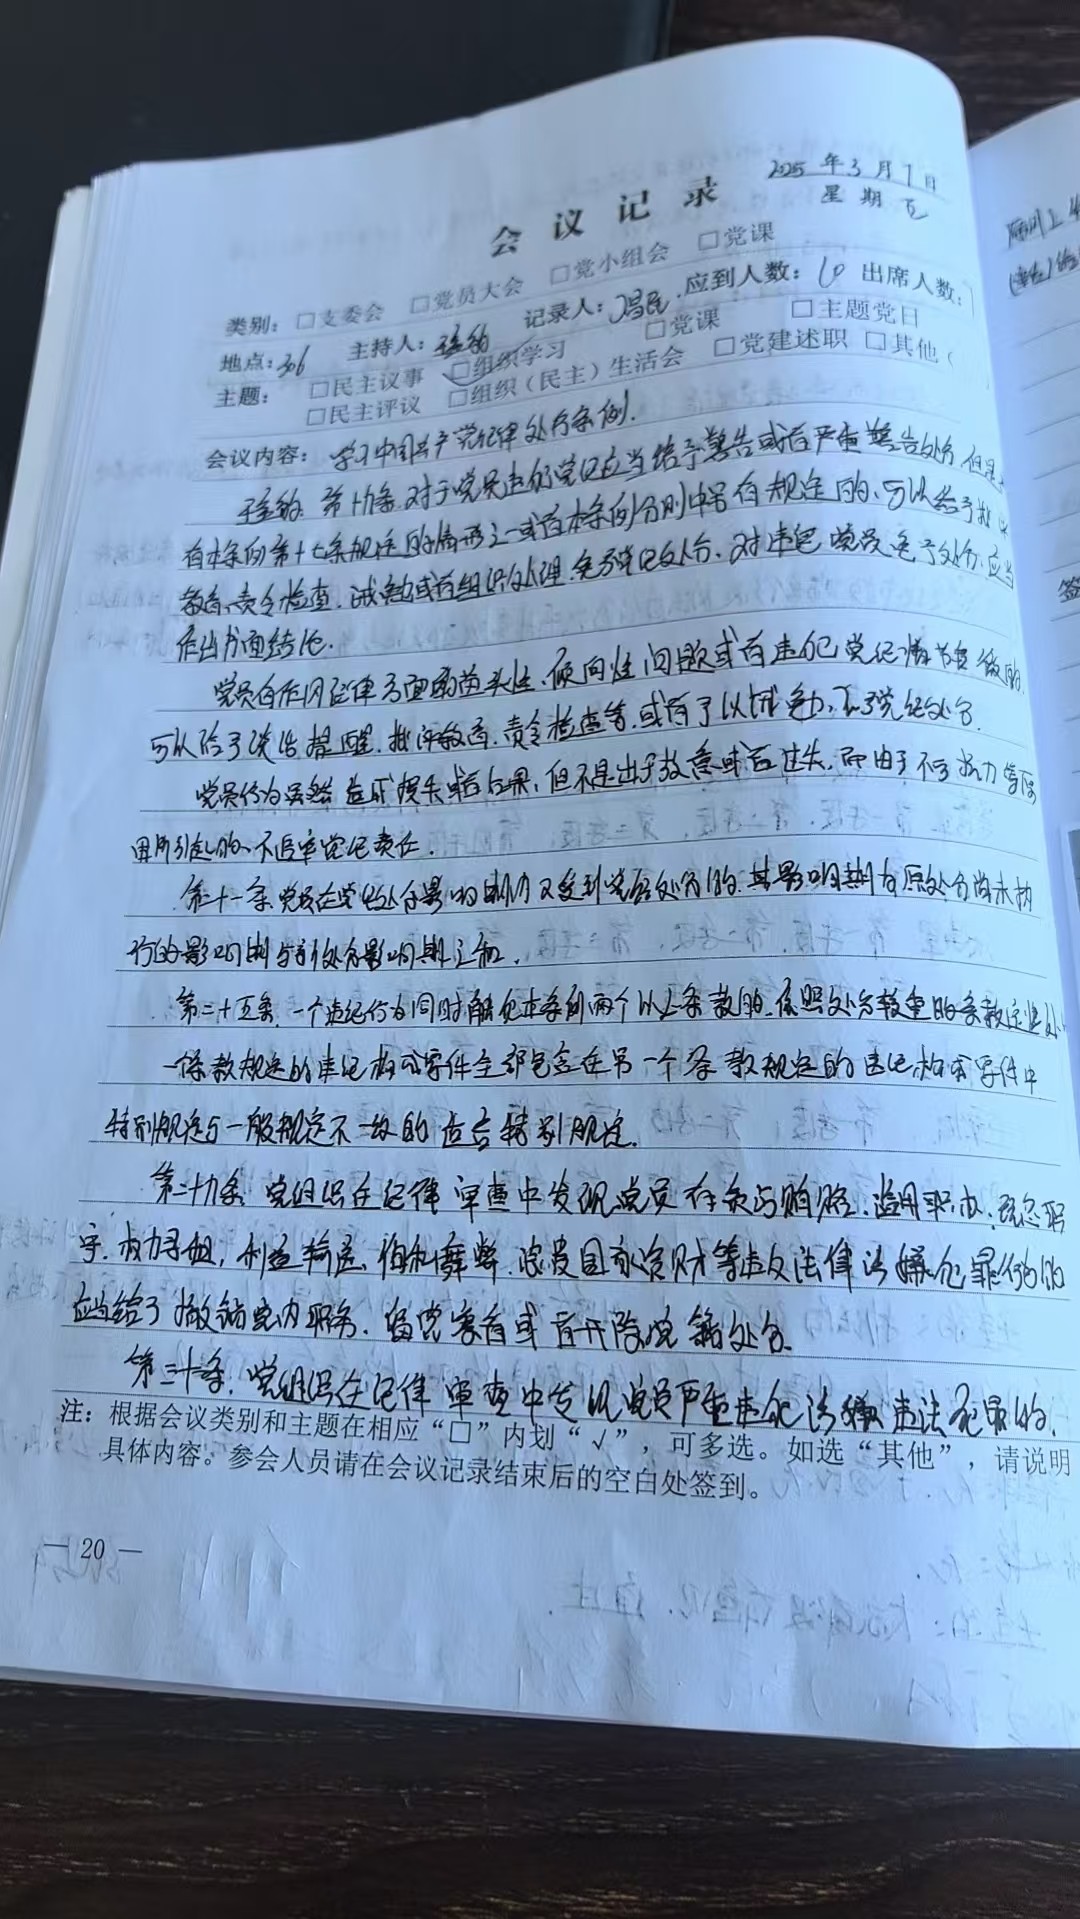 2025年3月7日
星期五
会议记录
类别：□支委会 □党员大会 □党小组会 □党课
地点：306 主持人： 记录人： 应到人数：10 出席人数：
主题：□民主议事 □组织学习 □党课 □主题党日
□民主评议 □组织（民主）生活会 □党建述职 □其他（
会议内容：学习中国共产党纪律处分条例.
第十九条.对于党员违犯党纪应当给予警告或者严重警告处分，但是
有本条例第十七条规定的情形之一或者本条例分则中另有规定的、可以给予批评
教育、责令检查、诫勉或者组织处理，免予党纪处分、对违纪党员免予处分，应当
作出书面结论.
党员有作风纪律方面的苗头性、倾向性问题或者违犯党纪情节轻微的
可以给予谈话提醒、批评教育、责令检查等，或者予以诫勉，不予党纪处分.
党员行为虽然造成损失或者后果，但不是出于故意或者过失，而由于不可抗力等原
因所引起的、不追究党纪责任.
党员在党纪处分影响期内又受到党纪处分的，其影响期为原处分尚未执
行的影响期与新处分影响期之和.
第二十五条、一个违纪行为同时触犯本条例两个以上条款的，依照处分较重的条款定性处
一条款规定的违纪构成要件全部包含在另一个条款规定的违纪构成要件中
特别规定与一般规定不一致的适合特别规定.
第二十九条 党组织在纪律审查中发现党员有贪污贿赂、滥用职权、玩忽职
守、权力寻租，利益输送、徇私舞弊、浪费国家资财等违反法律涉嫌犯罪行为的
应当给予撤销党内职务、留党察看或者开除党籍处分.
第三十条.党组织在纪律审查中发现党员严重违纪涉嫌违法犯罪的、
注：根据会议类别和主题在相应“□”内划“√”，可多选。如选“其他”，请说明
具体内容。参会人员请在会议记录结束后的空白处签到。
— 20 —